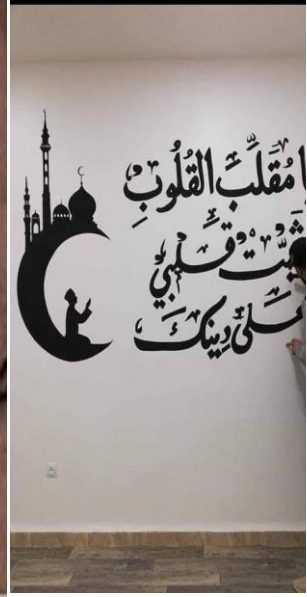 مُقَلِّبَ القُلُوبِ
ثَبِّت قَلبِيْ
عَلىٰ دِينِكَ